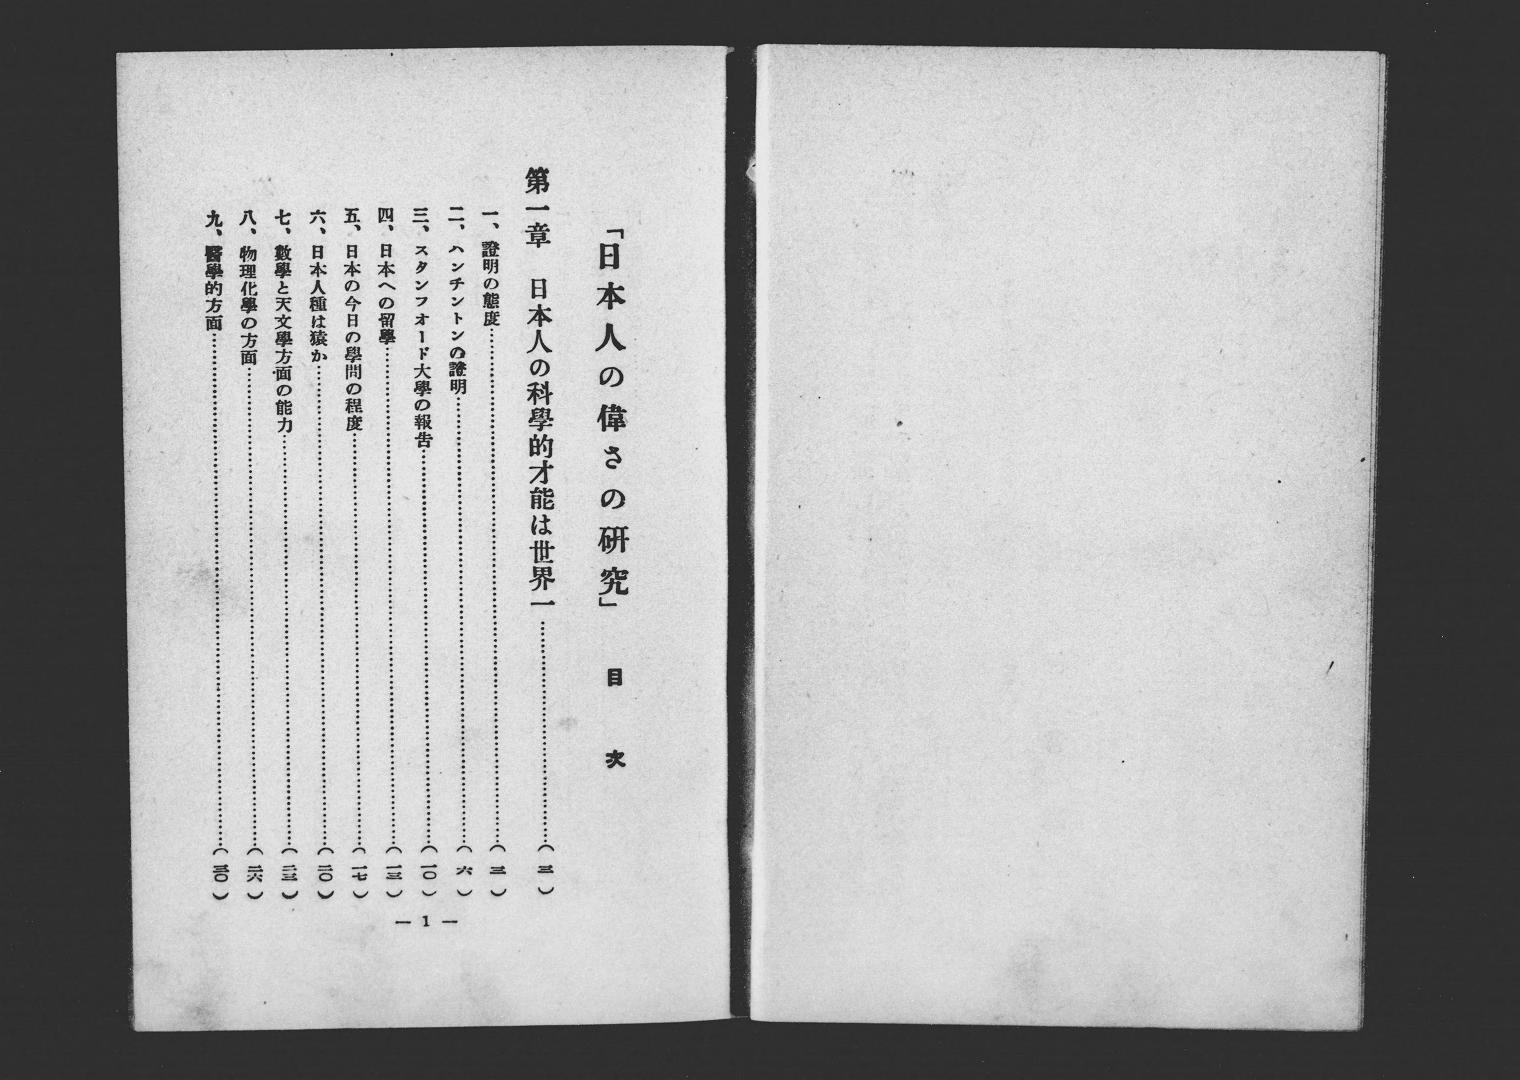 「日本人の偉さの研究」 目次
第一章 日本人の科學的才能は世界一……(三)
一、證明の態度……(三)
二、ハンチントンの證明……(六)
三、スタンフオード大學の報告……(一〇)
四、日本への留學……(一三)
五、日本の今日の學問の程度……(一七)
六、日本人種は猿か……(二〇)
七、數學と天文學方面の能力……(二三)
八、物理化學の方面……(二六)
九、醫學的方面……(三〇)
— 1 —